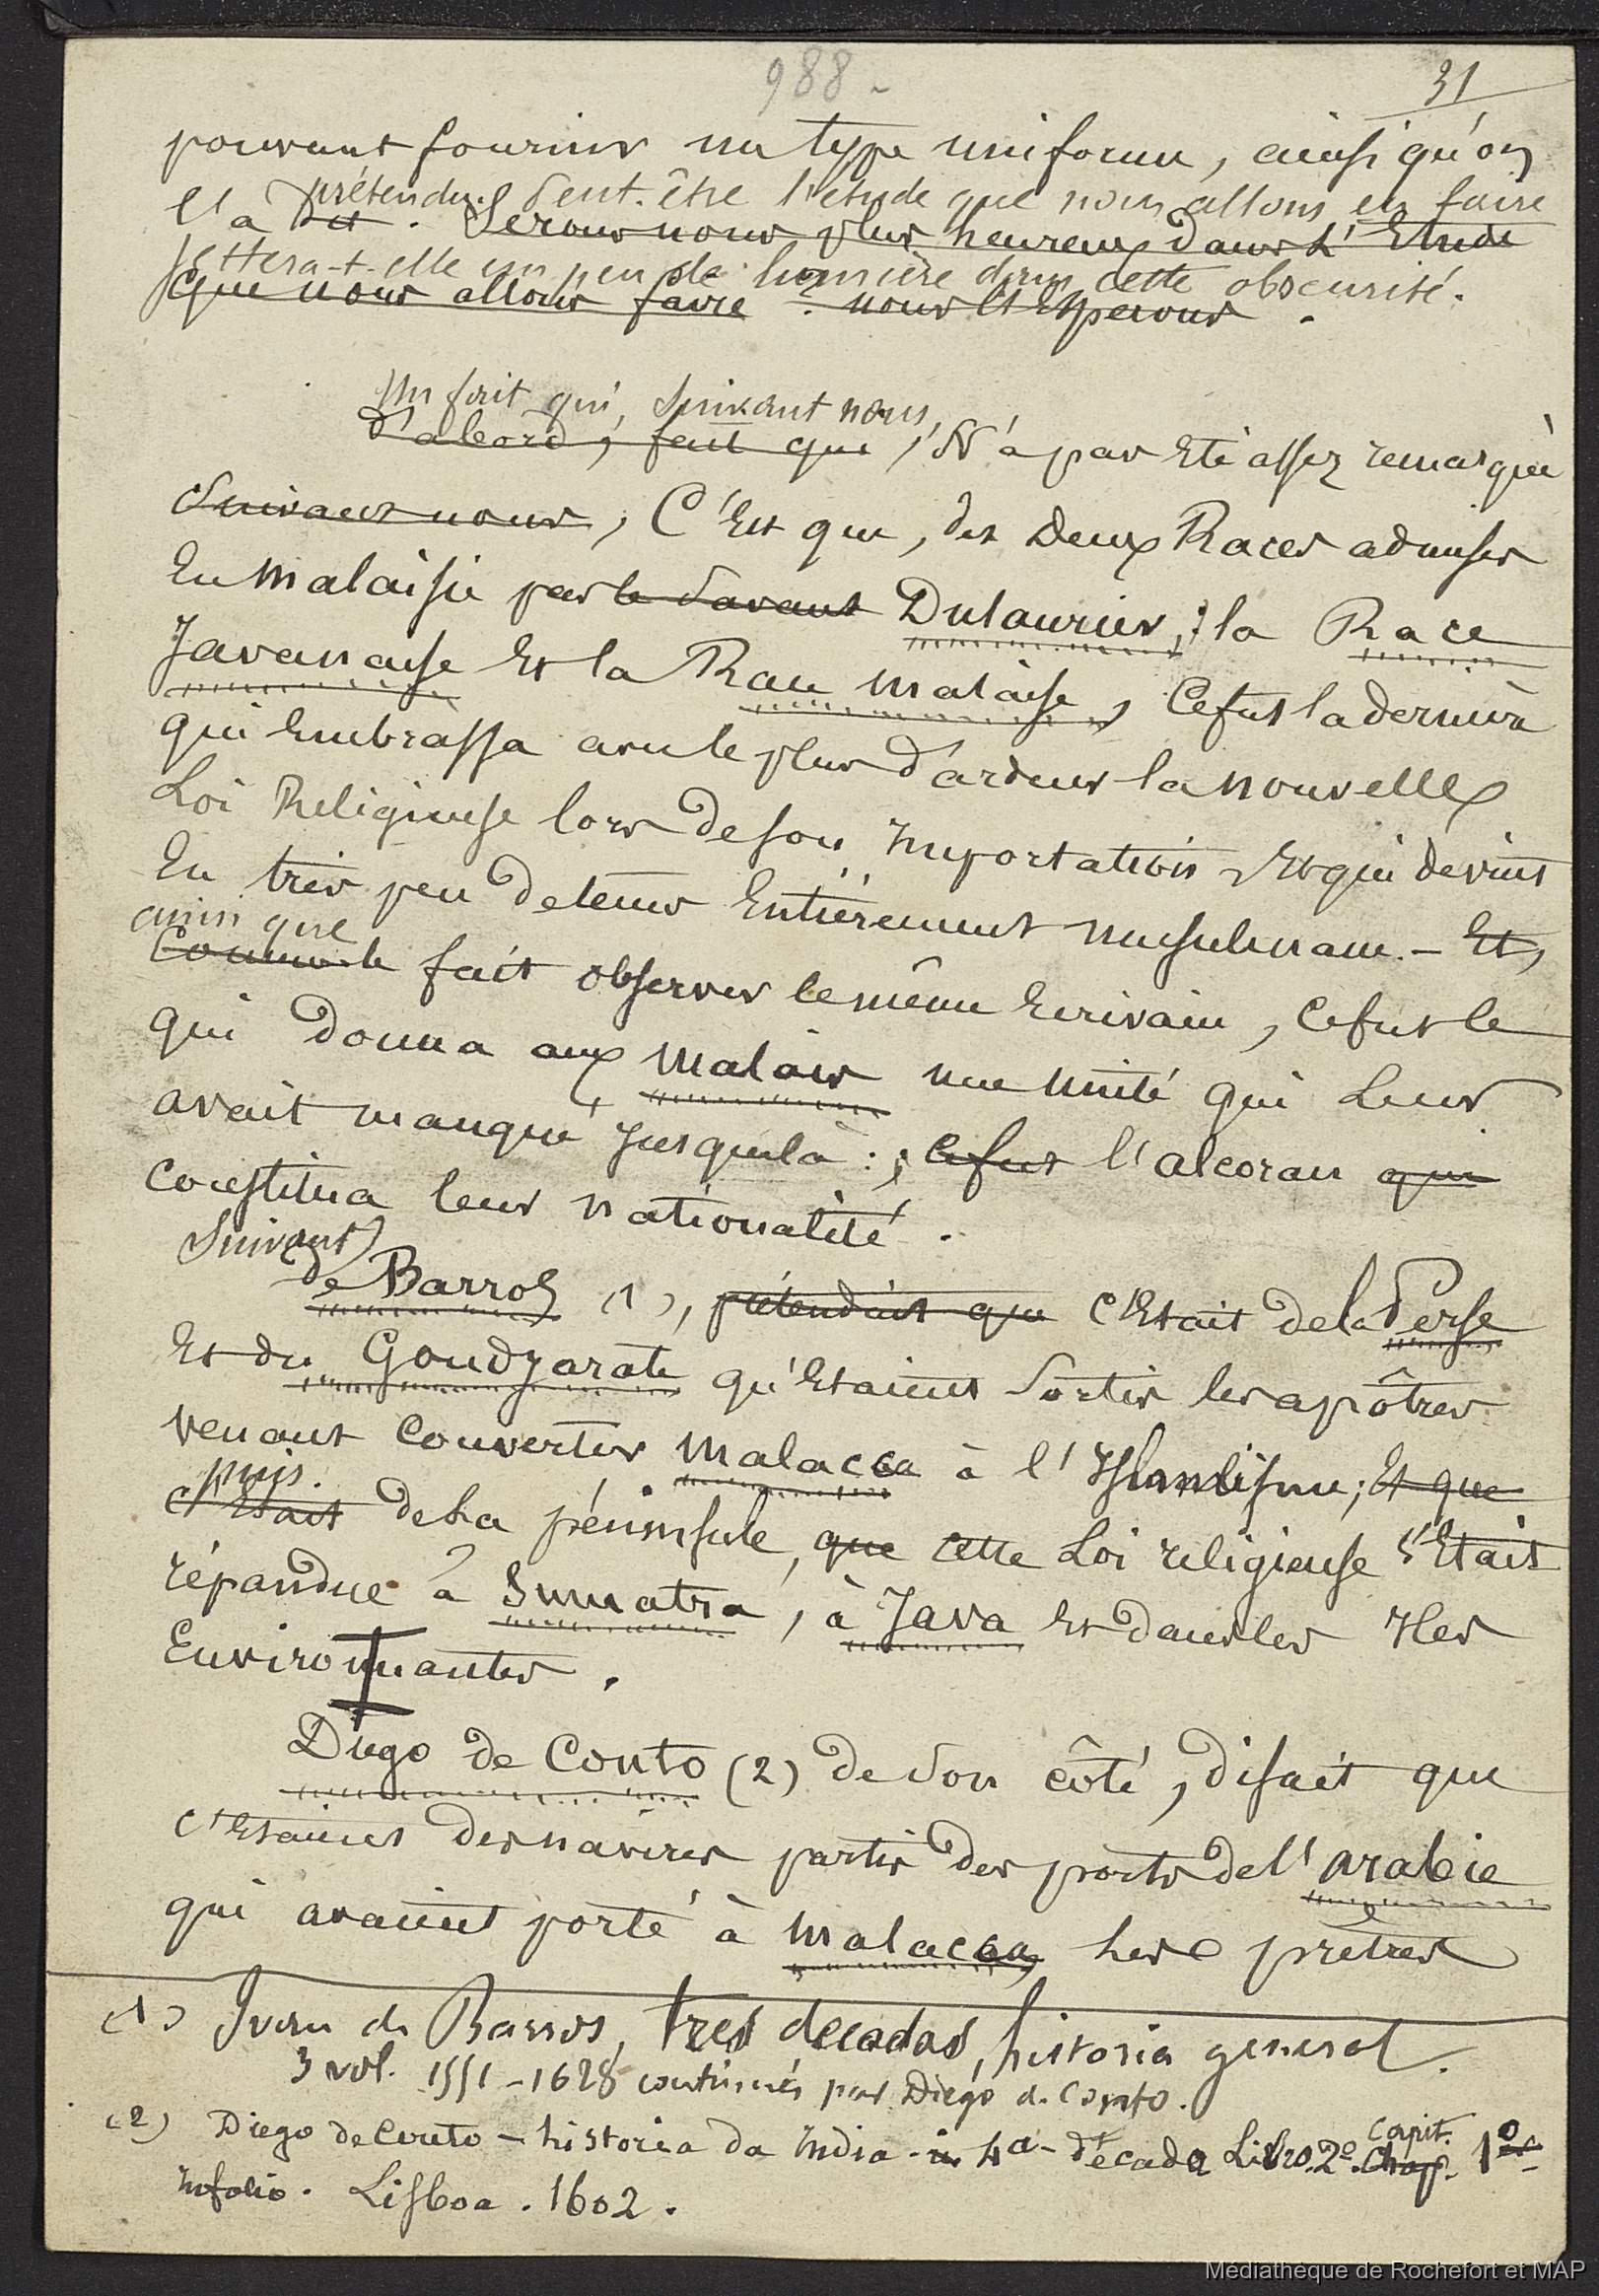 988
31
pouvant fournir un type uniforme, ainsi qu'on
prétendu. Peut-être l'étude que nous allons en faire
l'a dit. Serons nous plus heureux dans l'Etude
jettera-t-elle un peu de lumière dans cette obscurité.
que nous allons faire ? nous l'Espérons.
Un fait qui, suivant nous,
d'abord, fait qui, N'a pas Eté assez remarqué
Suivant nous, C'Est que, des Deux Races admises
En Malaisie par le Savant Dulaurier, : la Race
Javanaise Et la Race Malaise, Ce fut la dernière
qui Embrassa avec le plus d'ardeur la nouvelle
Loi Religieuse lors de son Importation, Et qui devint
En très peu de tems Entièrement musulmane. - Et,
ainsi que
Comme le fait observer le même Ecrivain, Ce fut le
qui donna aux Malais une unité qui Leur
avait manqué Jusque là : ; Ce fut l'alcoran qui
Constitua leur nationalité.
Suivant
de Barros (1), prétendait que C'Etait de la Perse
Et du Goudzarate qu'Etaient Sortis les apôtres
venant Convertir Malacca à l'Islamisme; Et que
puis.
C'Etait de la péninsule, que cette Loi religieuse s'Etait
répandue à Sumatra, à Java Et dans les Iles
Environnantes.
Diego de Couto (2) de Son côté, disait que
C'Etaient des navires partis des ports de l'arabie
qui avaient porté à Malacca, les prêtres
(1) Juan de Barros, tres decadas, historia general.
3 vol. 1551-1628 continués par Diego de Couto.
(2) Diego de Couto - historia da India - in 4a - décade Libro. 2º. Capit. Chap. 1º
Infolio. Lisboa. 1602.
Médiathèque de Rochefort et MAP